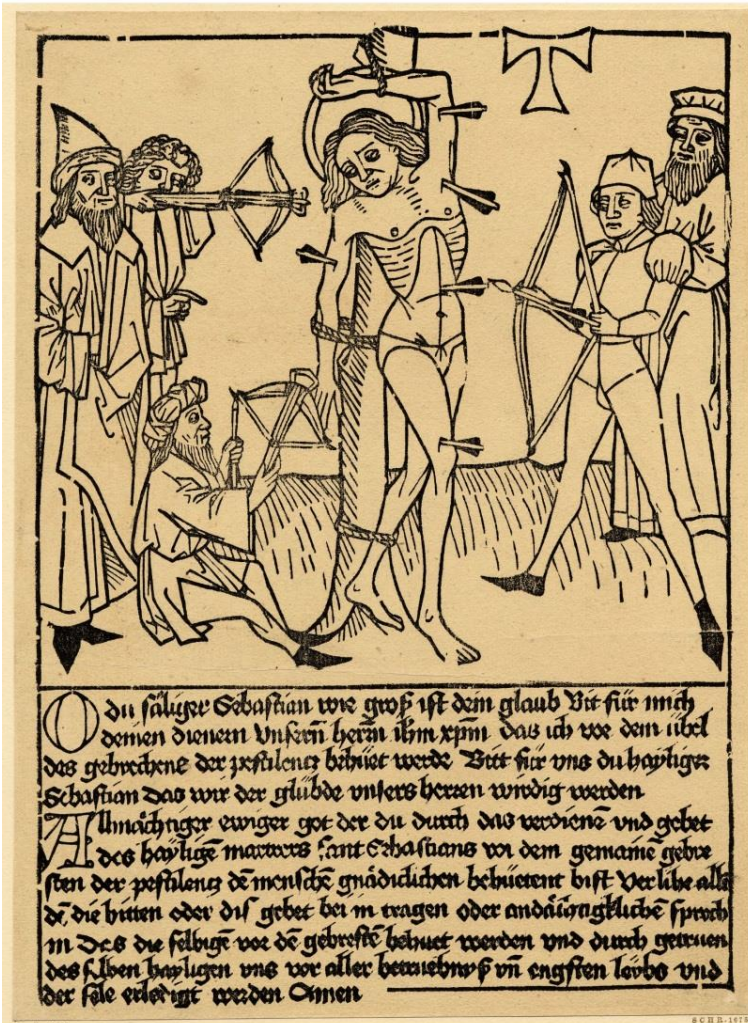 O du säliger Sebastian wie groß ist dein glaub Bit für mich
deinen dienern Vnsern̄ herrn̄ ihm̄ xpm̄ das ich vor dem übel
des gebrechens der pestilentz behüet werde Bitt für vns du hayliger
Sebastian Das wir der glübde vnsers herren wirdig werden
Allmächtiger ewiger got der du durch das verdienē vnd gebet
des hayligē martrers Sant Sebastians vor dem gemainē gebre
sten der pestilentz dē menschē gnädiclichen behüetent bist Verlihe alle
dē die bitten oder dis gebet bei in tragen oder andächtigklichē sprech
in Das die selbigē vor dē gebrestē behuet werden vnd durch getruen
des selben hayligen vns vor aller betruebnyß vn̄ engsten leybs vnd
der sele erledigt werden Amen